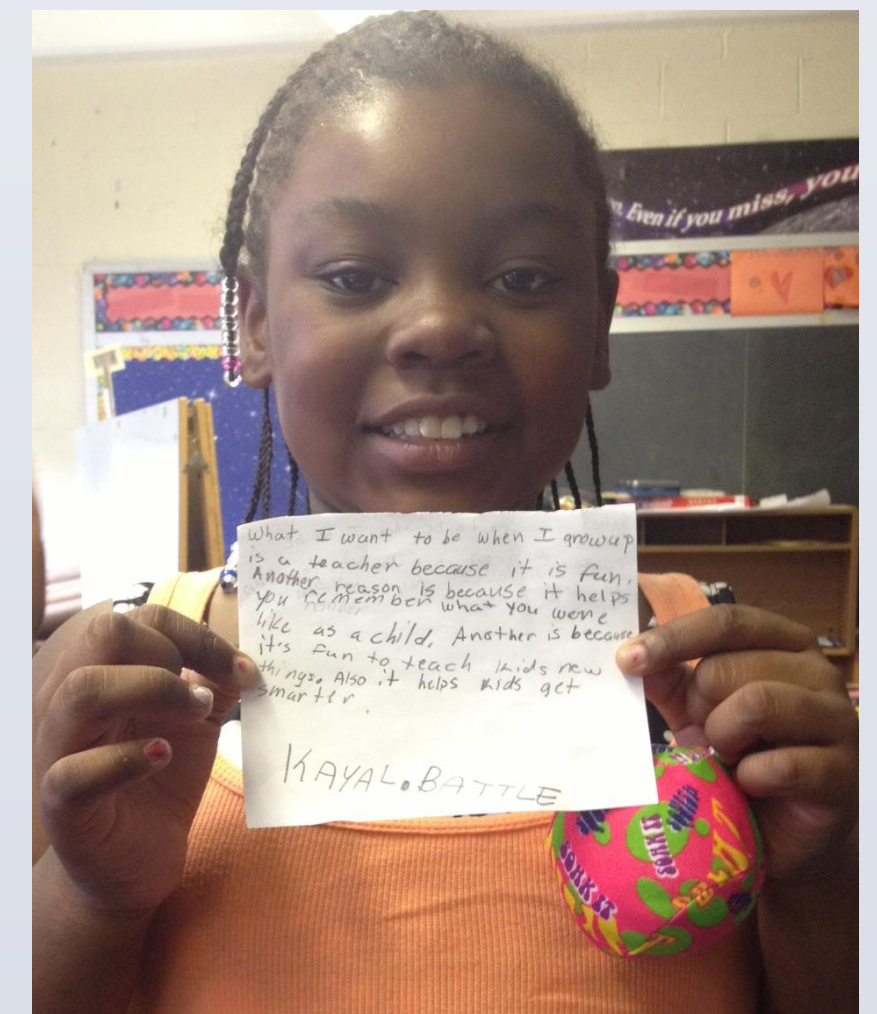 Even if you miss, you
What I want to be when I growup
is a teacher because it is fun.
Another reason is because it helps
you remember what you were
like as a child. Another is because
it's fun to teach kids new
things. Also it helps kids get
smarter.
KAYAL.BATTLE
SOAK IT
SOAK IT